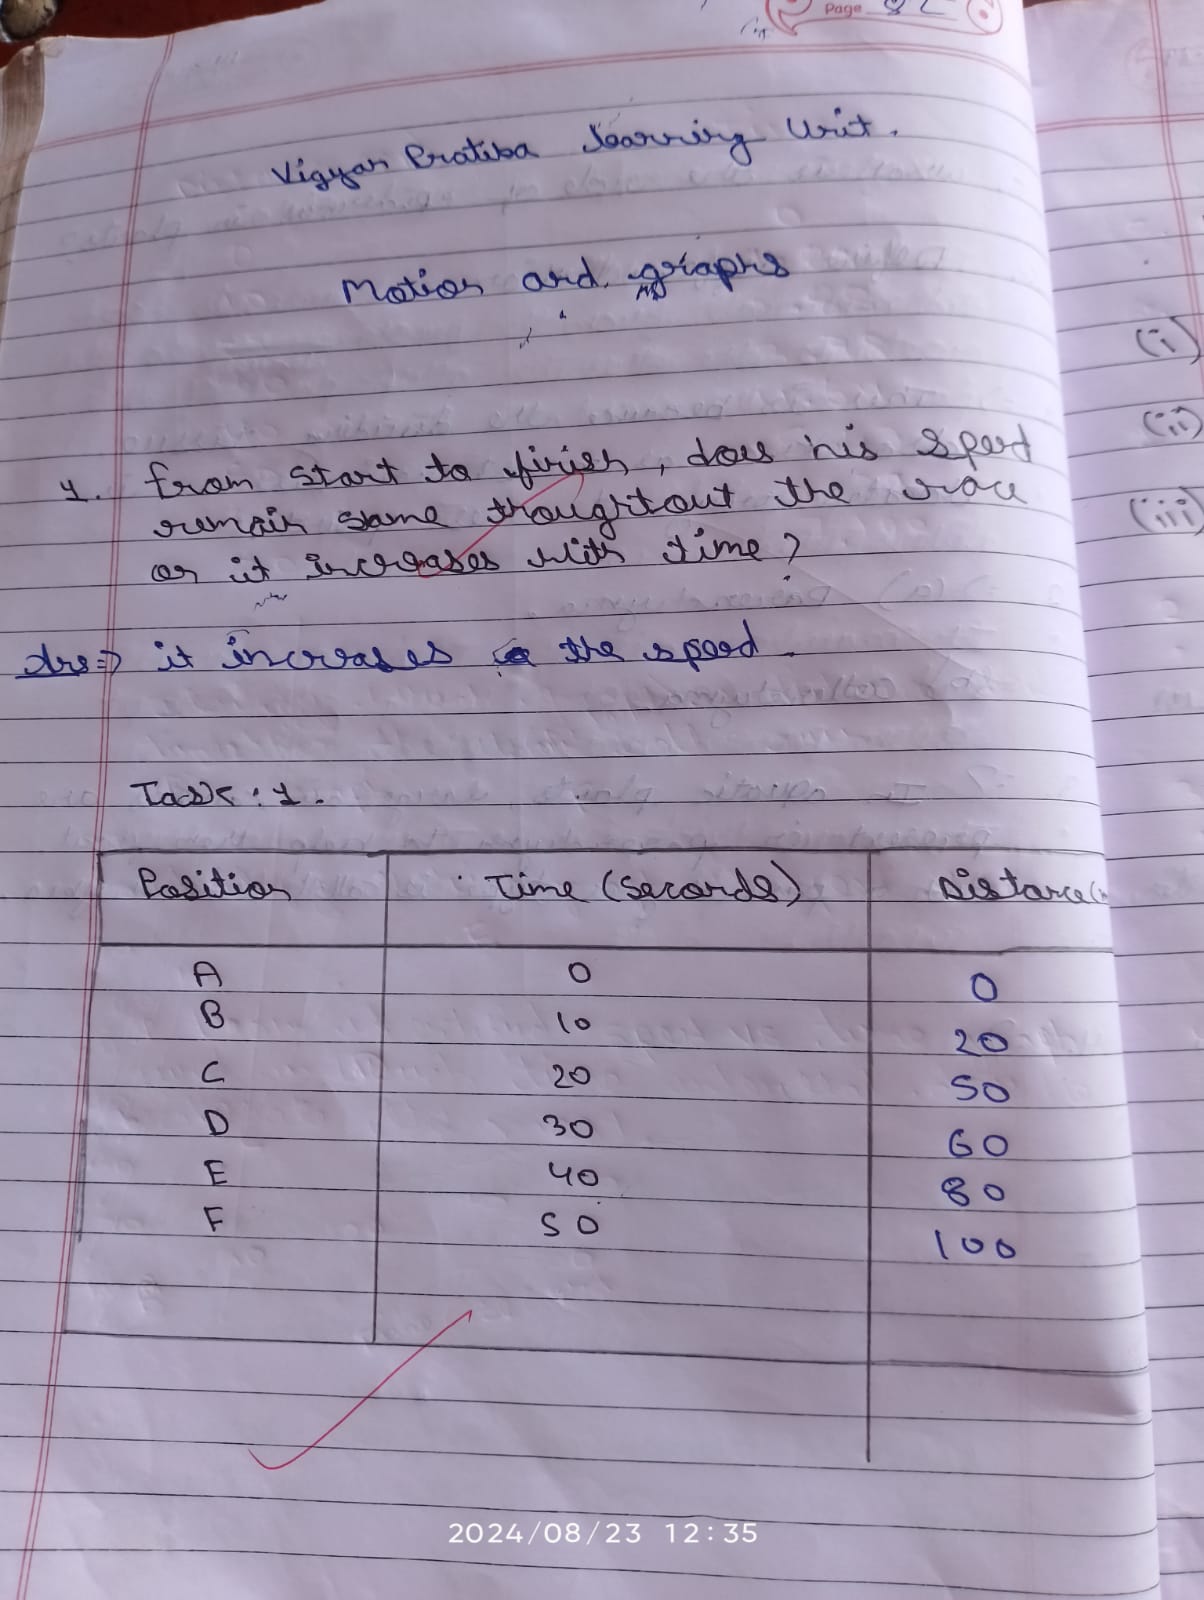 Page 82
Vigyan Pratiba learning Unit.
Motion and graphs
1. from start to finish, does his speed
remain same thoughtout the race
or it increases with time?
Ans⇒ it increases the speed.
Task : 1.
Position Time (seconds) Distance(
A 0 0
B 10 20
C 20 50
D 30 60
E 40 80
F 50 100
(i)
(ii)
(iii)
2024/08/23 12:35